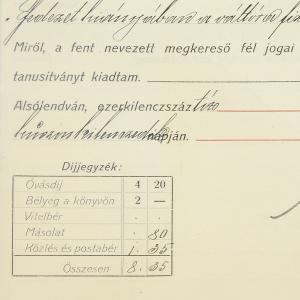 Fedezet hiányában a váltóra
Miről, a fent nevezett megkereső fél jogai
tanusítványt kiadtam.
Alsólendván, ezerkilenczszáz tíz
napján.
Díjjegyzék:
Óvásdíj 4 20
Bélyeg a könyvön 2 —
Vitelbér . .
Másolat . 80
Közlés és postabér 1. 35
Összesen 8. 35